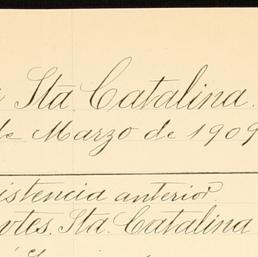 Sta. Catalina.
de Marzo de 1909
istencia anterior
Sta. Catalina